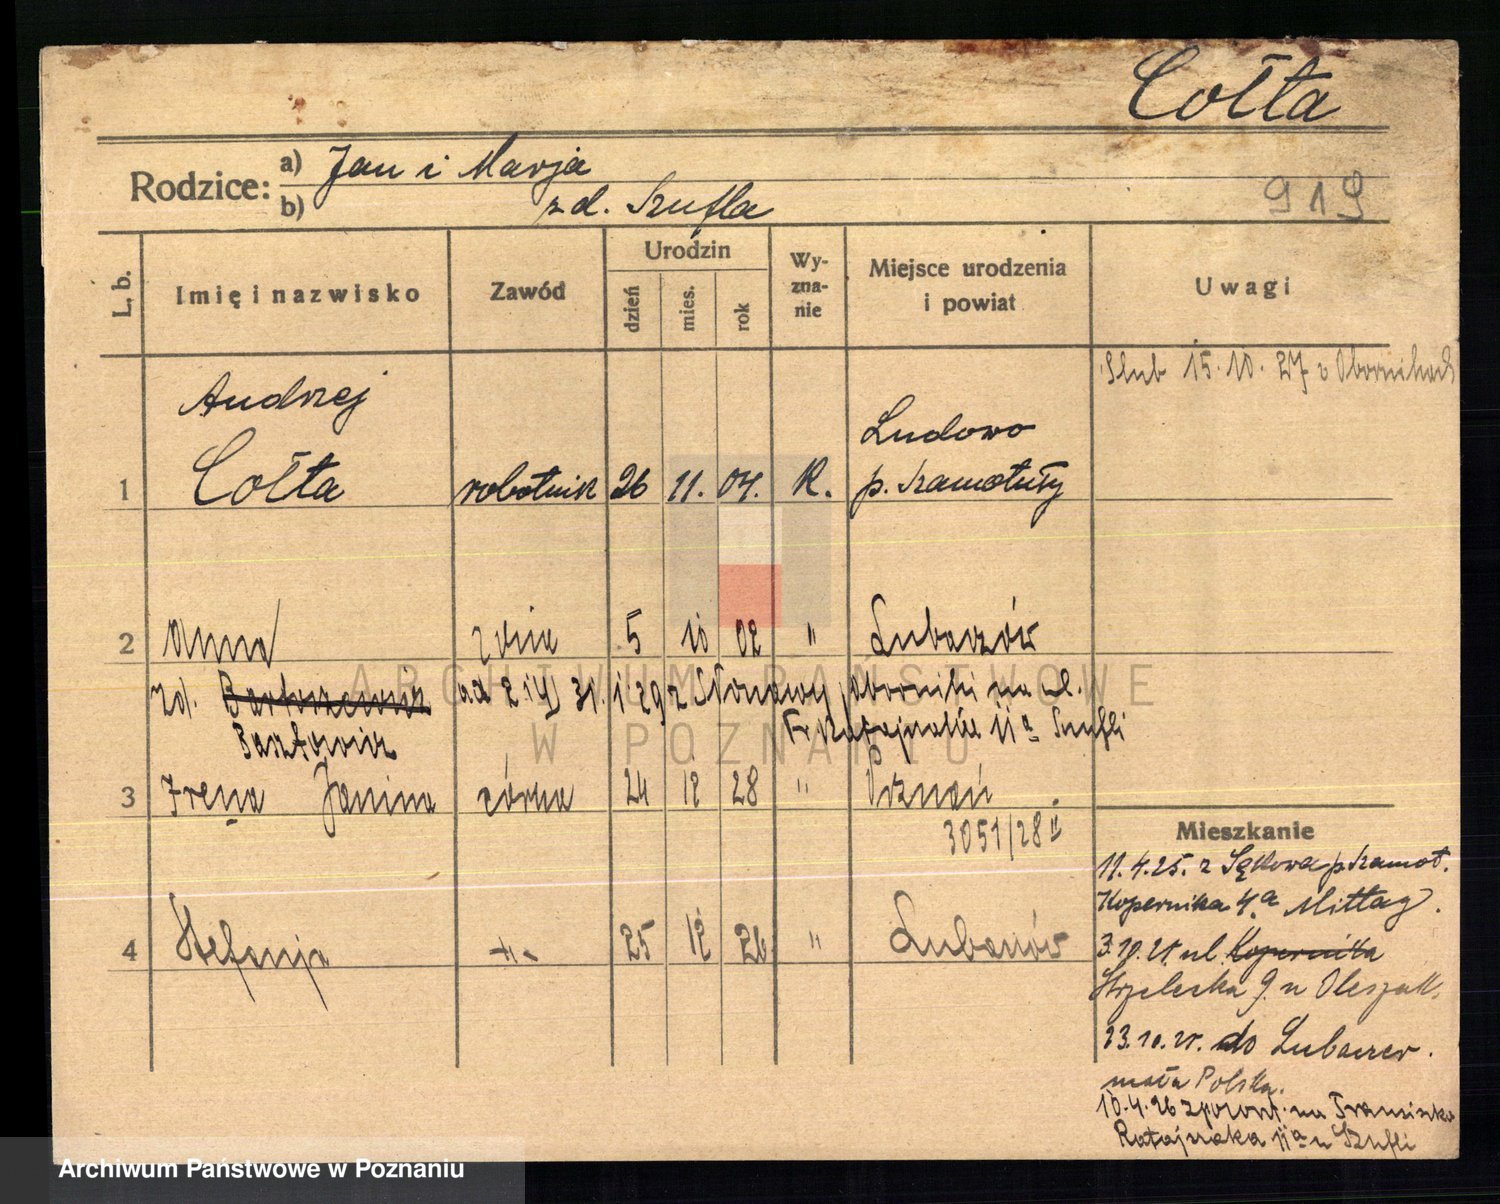 Cołta
Rodzice: a) Jan i Marja
b) z d. Szufla
919
L. b.
Imię i nazwisko
Zawód
Urodzin
dzień
mies.
rok
Wy-
zna-
nie
Miejsce urodzenia
i powiat
Uwagi
Ślub 15.10.27 w Obornikach
Andrzej
Ludowo
1 Cołta robotnik 26 11. 04. R. p. Szamotuły
2 Anna żona 5 10 02 " Lubaczów
zd. Bartoszewicz od 31.1.29 z Oborniki na ul.
Fr. Ratajczaka 11a Szufli
Bartowicz
3 Irena Janina córka 24 12 28 " Poznań
3051/28 II
4 Stefanja -"- 25 12 26 " Lubaczów
Mieszkanie
11.4.25. z Sękowa p. Szamot.
Kopernika 4a Mittag.
3.10.25 ul. Kopernika
Strzelecka 9. u Oleszak.
23.10.25. do Lubaczow.
mała Polska.
10.4.26 z powrot. na Franciszka
Ratajczaka 11a u Szufli
ARCHIWUM PAŃSTWOWE
W POZNANIU
Archiwum Państwowe w Poznaniu